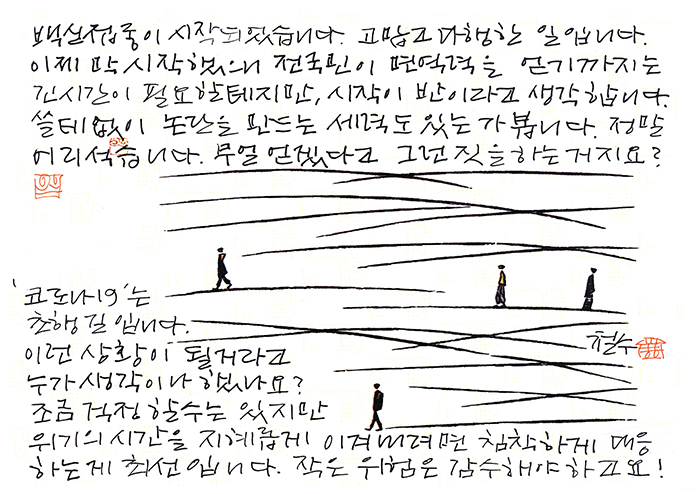 백신접종이 시작되었습니다. 고맙고 다행한 일입니다.
이제 막 시작했으니 전국민이 면역력을 얻기까지는
긴시간이 필요할테지만, 시작이 반이라고 생각합니다.
쓸데없이 논란을 만드는 세력도 있는가 봅니다. 정말
어리석습니다. 무얼 얻겠다고 그런짓을하는거지요?
'코로나19'는
초행길입니다.
이런 상황이 될거라고
누가생각이나 했나요?
조금 걱정할수는 있지만
위기의 시간을 지혜롭게 이겨내려면 침착하게 대응
하는게 최선입니다. 작은 위험은 감수해야하고요!
철수